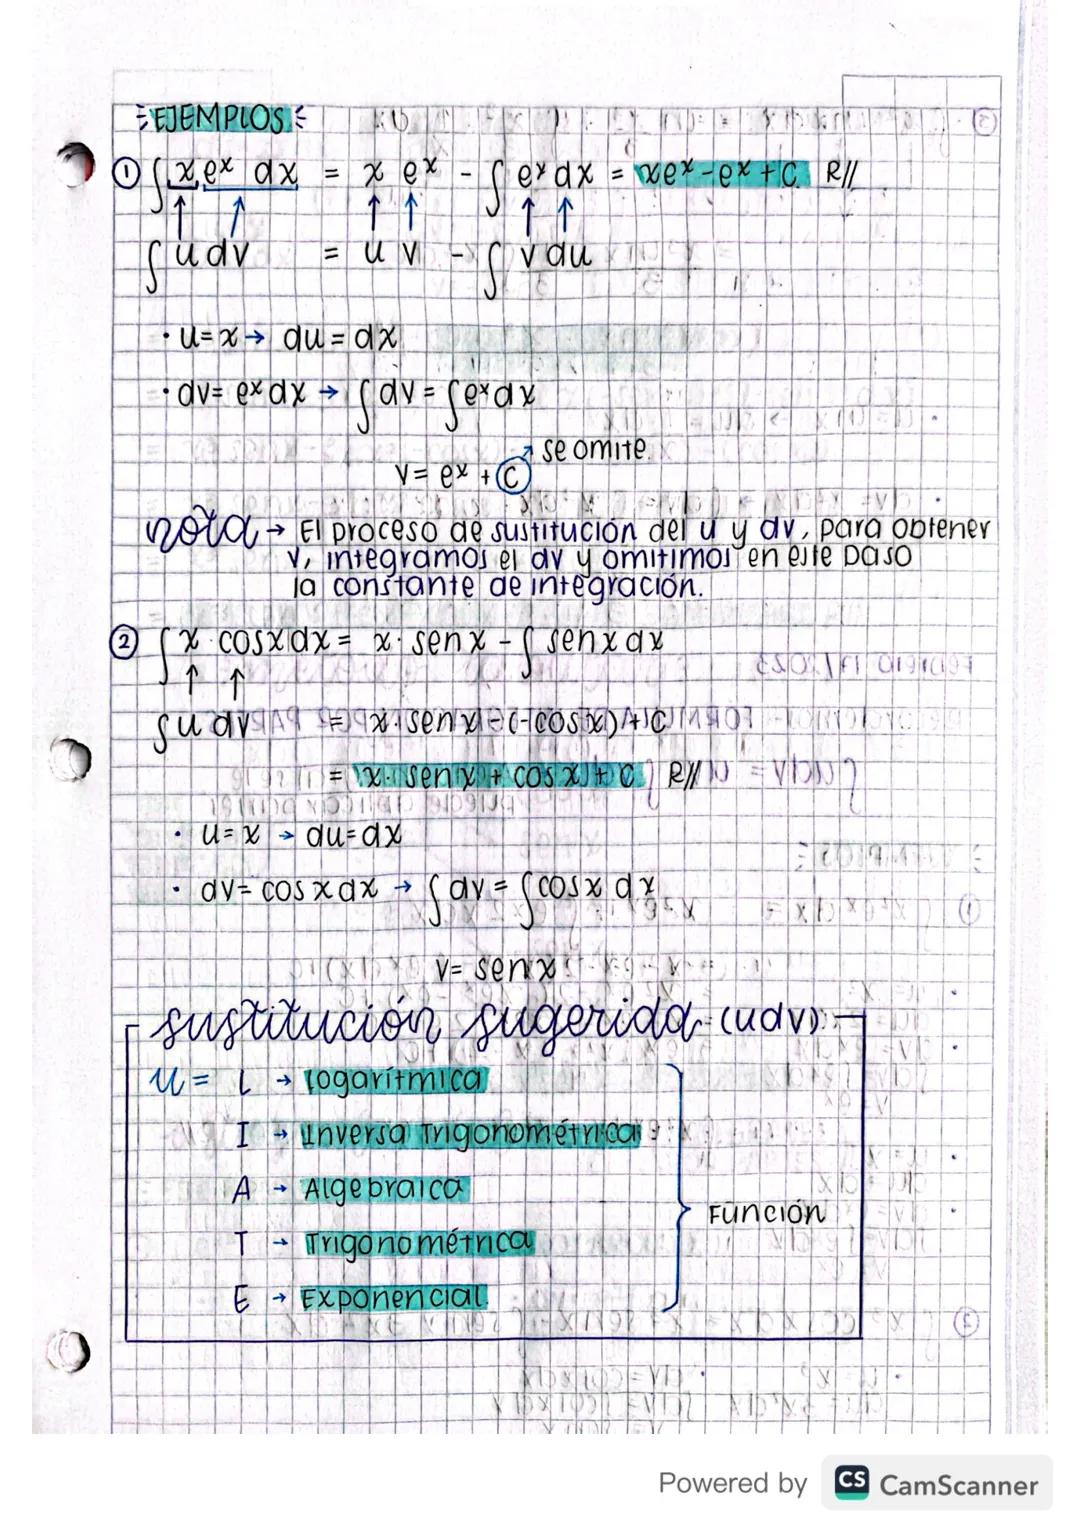 EJEMPLOS
① ∫ x eˣ dx = x eˣ - ∫ eˣ dx = xeˣ - eˣ + C R//
∫ u dv = u v - ∫ v du
· u = x → du = dx
· dv = eˣ dx → ∫ dv = ∫ eˣ dx
se omite.
v = eˣ + C
nota → El proceso de sustitución del u y dv, para obtener
v, integramos el dv y omitimos en este paso
la constante de integración.
② ∫ x · cosx dx = x · senx - ∫ senx dx
∫ u dv = x · senx - (-cosx) + C
= x · senx + cosx + C R//
· u = x → du = dx
· dv = cosx dx → ∫ dv = ∫ cosx dx
v = senx
sustitución sugerida (udv)
u = L → logarítmica
I → Inversa Trigonométrica
A → Algebraica
Función
T → Trigonométrica
E → Exponencial.
Powered by CS CamScanner